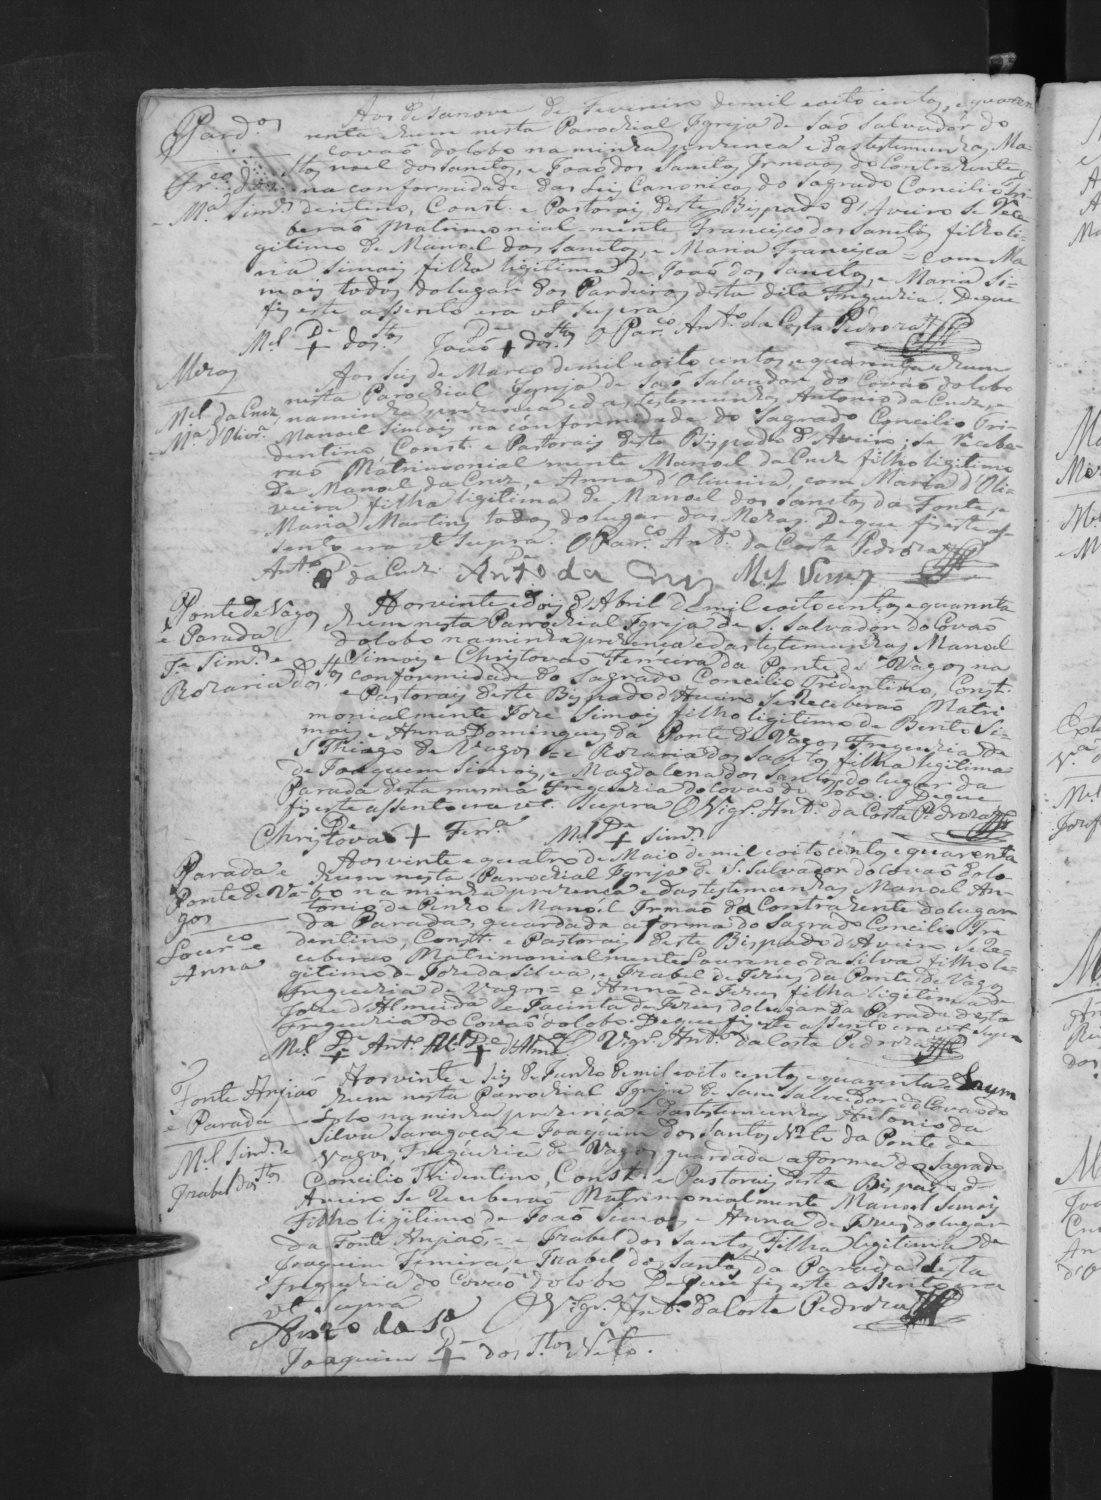 Pard.os
Fr.co dos S.tos
e M.a Sim.s
Aos desanove de Fevereiro de mil e oito centos, e quaren
renta e hum nesta Parochial Igreja de São Salvador do
Covaõ do lobo na minha presença e das testemunhas Ma-
noel dos Santos, e Joaõ dos Santos Irmaos do Contrahente
na conformidade das Leis Canonicas do Sagrado Concilio Tri-
dentino, Const. e Pastorais deste Bispado d'Aveiro Se Rece
beraõ Matrimonial-mente Francisco dos Santos filho li-
gitimo de Manoel dos Santos, e Maria Francisca = com Ma
ria Simois filha ligitima de Joaõ dos Santos, e Maria Si=
mois todos do lugar dos Pardeiros desta dita Freguezia. De que
fis este aSsento era ut supra.
M.el De + dos S.tos Joaõ De + dos S.tos O Par.co Ant.o da Costa Pedroza
Mezas
M.el da Cruz
M.a d'Oliv.a
Aos seis de Março de mil e oito centos, e quarenta e hum
nesta Parochial Igreja de Saõ Salvador do Covaõ do lobo
na minha presença e das testemunhas Antonio da Cruz, e
Manoel Simois na conformidade do Sagrado Concilio Tri-
dentino Const. e Pastorais deste Bispado d'Aveiro se Rcebe-
raõ Matrimonial mente Manoel da Cruz filho ligitimo
de Manoel da Cruz, e Anna d'Oliveira, com Maria d'Oli-
veira filha ligitima de Manoel dos Santos da Fonte, e
Maria Martins todos do lugar das Mezas. De que fis este as-
sento era ut supra. O Par.co Ant.o da Costa Pedroza
Ant.o De da Cruz. Ant.o da Cruz M.el Simois
Ponte de Vagos
e Parada
J.e Sim.s e
Rozaria dos S.tos
Aos vinte e dois d'Abril de mil e oito centos, e quarenta
e hum nesta Parrochial Igreja de S. Salvador do Covaõ
do lobo na minha prezença e das testemunhas Manoel
Simois e Christovaõ Ferreira da Ponte de Vagos na
conformidade do Sagrado Concilio Tridentino, Const.
e Pastorais deste Bispado d'Aveiro Se Receberaõ Matri
monialmente Joze Simois filho ligitimo de Bento Si-
mois e Anna Domingues da Ponte de Vagos Freguezia de
S Thiago de Vagos = e Rozaria dos Santos filha ligitima
de Joaquim Simois, e Magdalena dos Santos do lugar da
Parada desta mesma Freguezia do Covaõ do Lobo. De que
fis este assento era ut. Supra O Vigr.o Ant.o da Costa P.edroza
Christovaõ De + Ferr.a M.el De + Sim.s
Parada e
Ponte de Va-
gos
Lour.co e
Anna
Aos vinte e quatro de Maio de mil e oito centos, e quarenta
e hum nesta Parochial Igreja de S. Salvador do Covaõ do lo
bo na minha prezença e das testemunhas Manoel An-
tonio de Pinho e Manoel Irmaõ da Contrahente do lugar
da Parada, guardada a forma do Sagrado Concilio Tri
dentino, Const. e Pastorais deste Bispado d'Aveiro Se Re-
ceberaõ Matrimonialmente Lourenco da Silva filho li-
gitimo de Joze da Silva, e Izabel de Jezus da Ponte de Vagos
Freguezia de Vagos = e Anna de Jezus filha ligitima de
Joze d'Almeida e Jacinta de Jezus do lugar da Parada desta
Freguezia do Covaõ do lobo. De que fis este assento era ut supra
M.el De + Ant.o M.el De + d'Alm.da O Vigr.o Ant.o da Costa Pedroza
Fonte Anjiaõ
e Parada
M.el Sim.s e
Izabel dos S.tos
Aos vinte e seis de Junho de mil e oito centos, e quarenta e hum
nesta Parochial Igreja de Sam Salvador do Covaõ do
Lobo na minha prezença e das testemunhas Antonio da
Silva Saragoça e Joaquim dos Santos N.to da Ponte de
Vagos, Freguezia de Vagos guardada a forma do Sagrado
Concilio Tridentino, Const. e Pastorais deste Bispado d'
Aveiro Se Receberaõ Matrimonialmente Manoel Simois
Filho ligitimo de Joaõ Simois e Anna de Jezus do lugar
da Fonte Anjiaõ, = e Izabel dos Santos Filha ligitima de
Joaquim Simois, e Izabel dos Santos da Parada desta
Freguezia do Covaõ do lobo De que fis este assento era
ut supra O Vigr.o Ant.o da Costa Pedroza
Anto da Sa
Joaquim De + dos S.tos Neto.